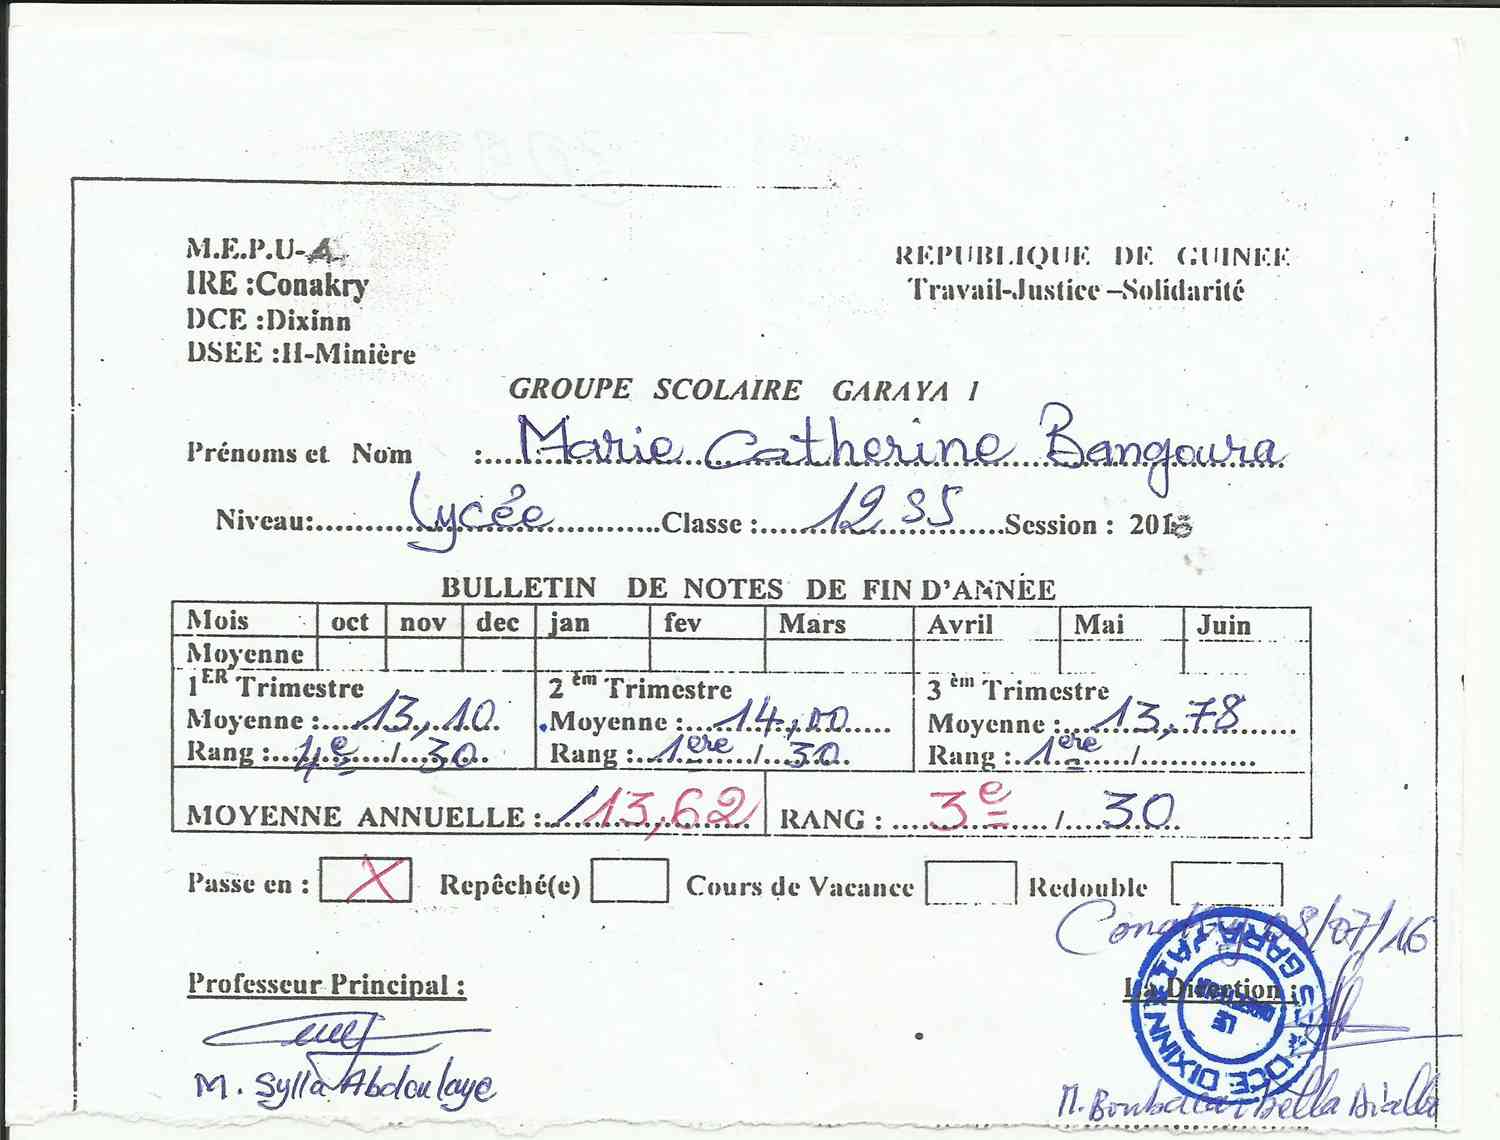 M.E.P.U-A
REPUBLIQUE DE GUINEE
IRE :Conakry
Travail-Justice –Solidarité
DCE :Dixinn
DSEE :II-Minière
GROUPE SCOLAIRE GARAYA I
Prénoms et Nom :....Marie Catherine Bangoura
Niveau:....Lycée....Classe :....12 SS....Session : 2016
BULLETIN DE NOTES DE FIN D'ANNÉE
Mois oct nov dec jan fev Mars Avril Mai Juin
Moyenne
1ER Trimestre 2 èm Trimestre 3 èm Trimestre
Moyenne :....13,10 Moyenne :....14,00 Moyenne :....13,78
Rang :....4e..../....30 Rang :....1ere..../....30 Rang :....1ere..../....
MOYENNE ANNUELLE :../13,62 RANG : ....3e..../....30
Passe en : X Repêché(e) Cours de Vacance Redouble
Conakry 08/07/16
Professeur Principal : La Direction :
M. Sylla Abdoulaye
M. Boubacar Bella Diallo
DCE DIXINN
LE